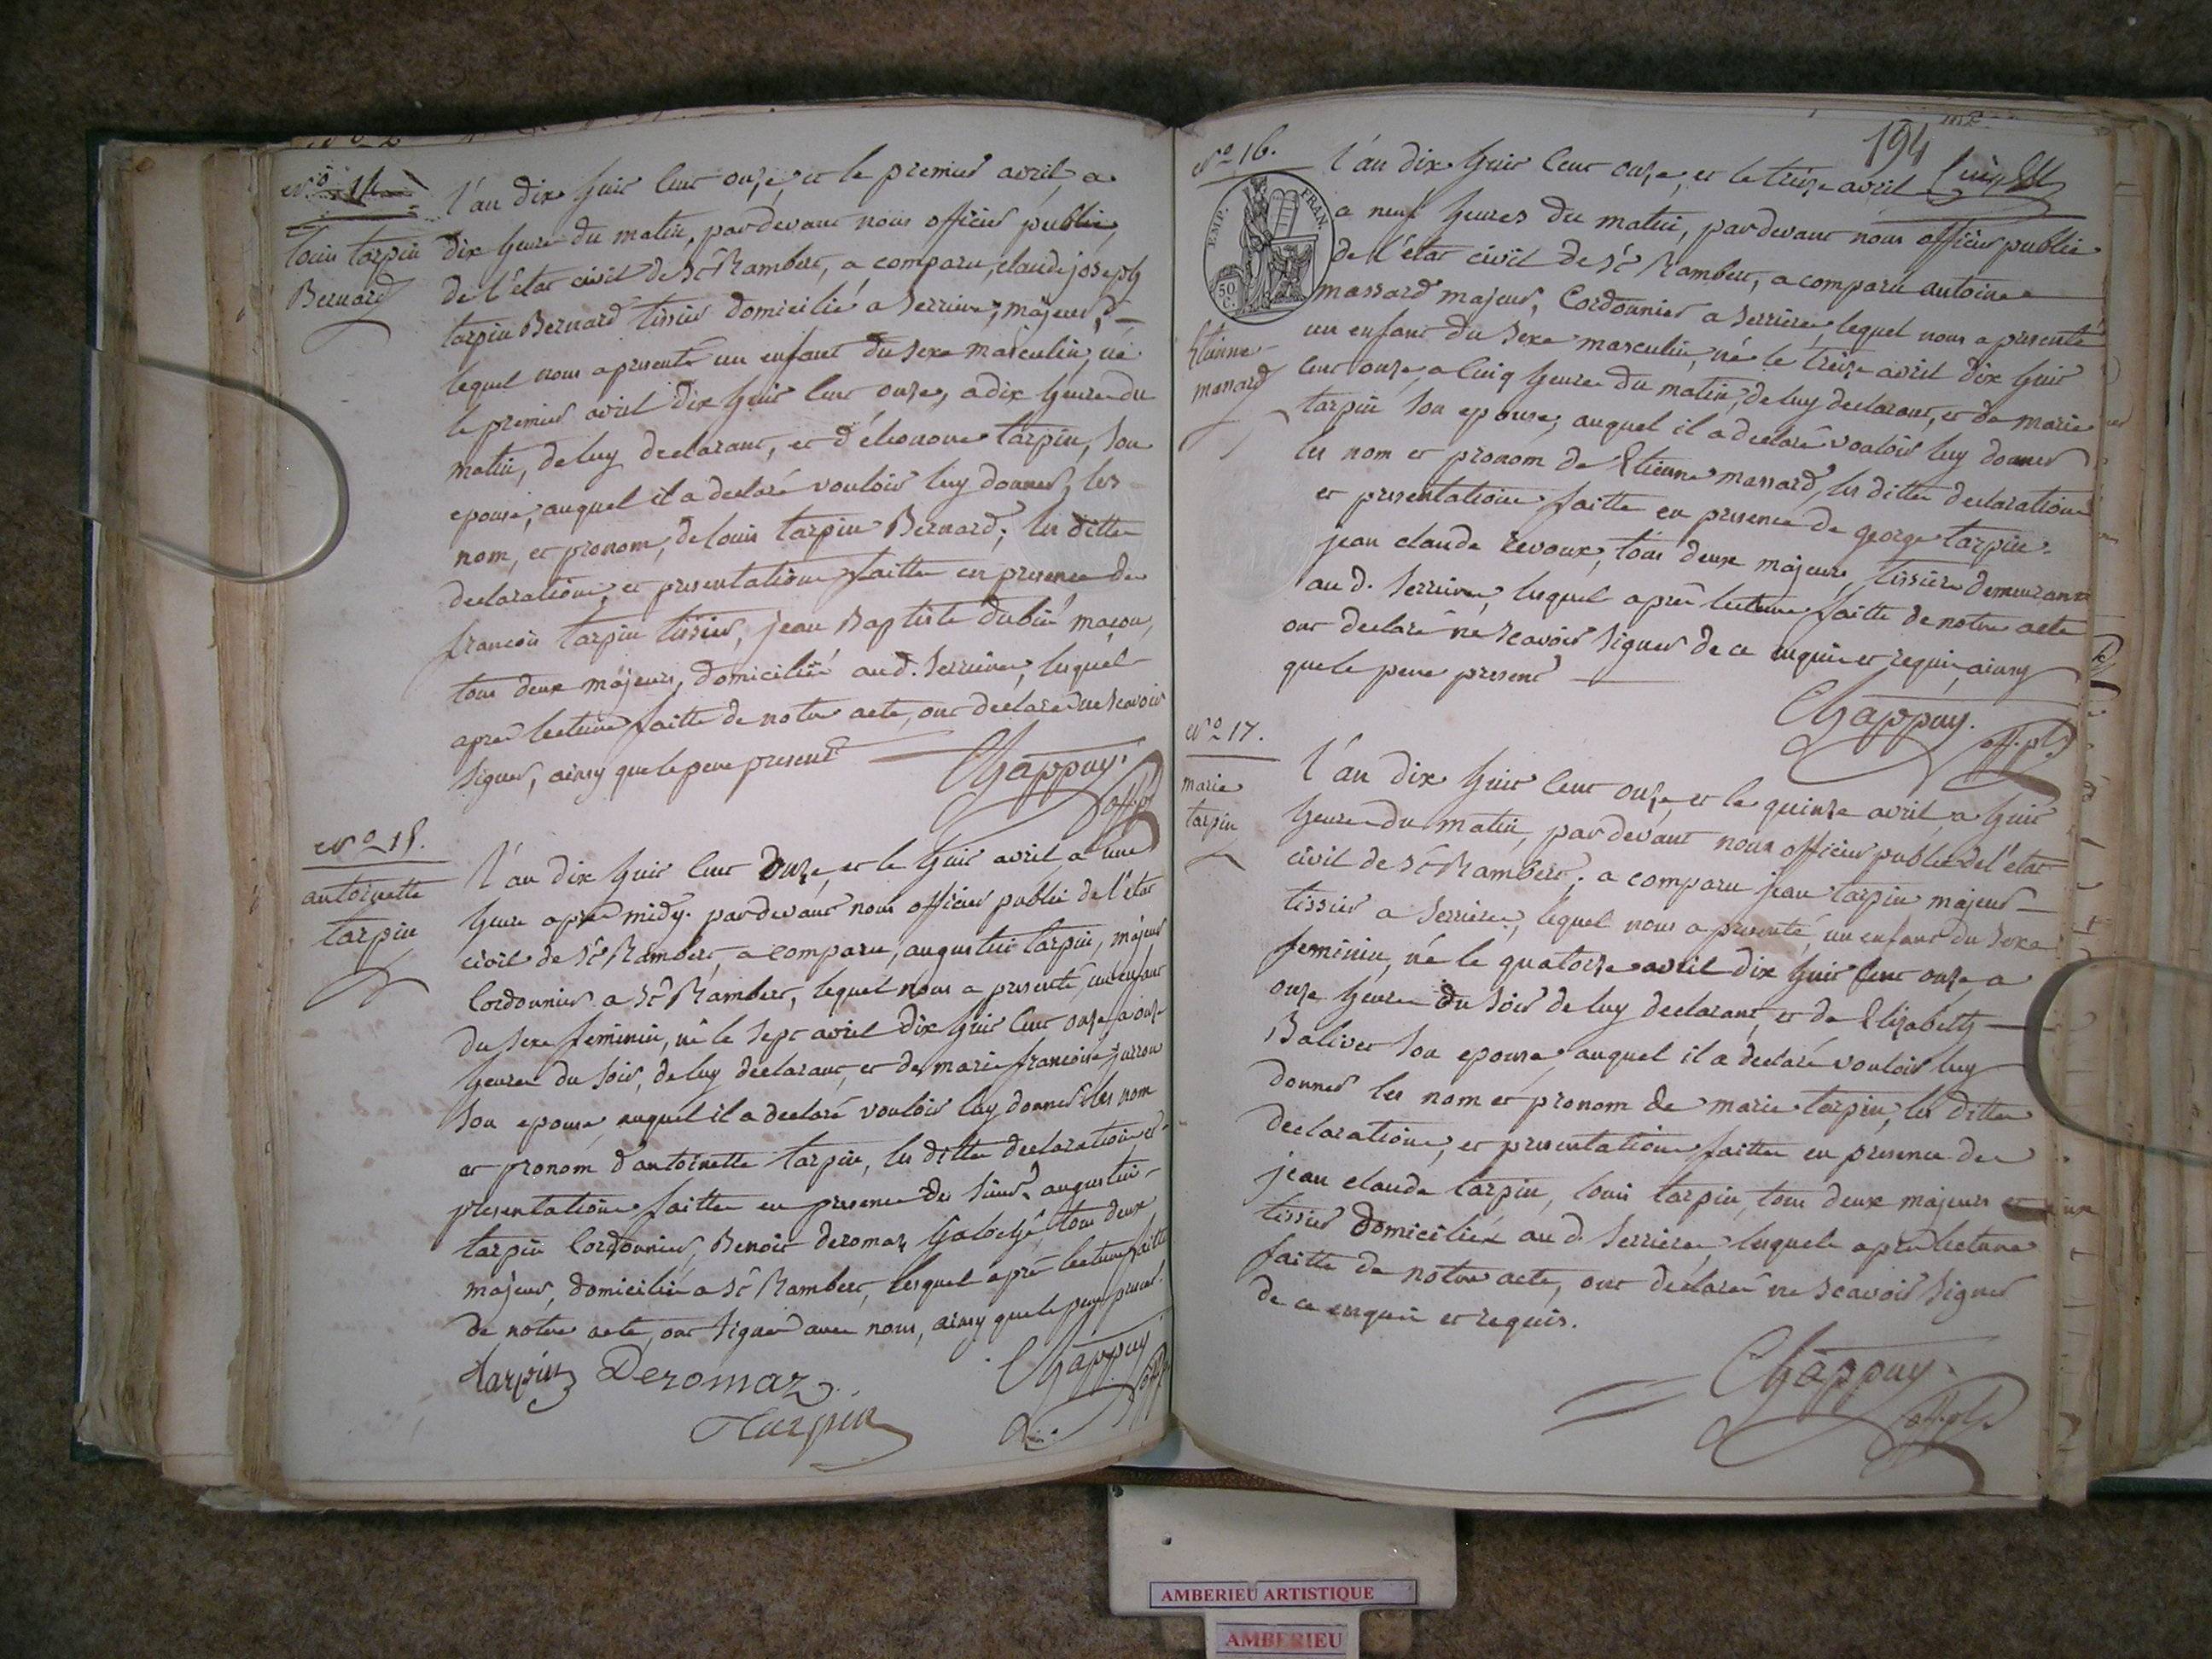 No 14
Louis tarpin
Bernard
L'an dix huit cent onze, et le premier avril, a
dix heures du matin, pardevant nous officier public,
de l'état civil de St Rambert, a comparu, claude joseph
tarpin Bernard tissier domicilié a Serriere, majeur,
lequel nous a presenté un enfant du sexe masculin, né
le premier avril dix huit cent onze, a dix heures du
matin, de luy declarant, et d'éleonore tarpin, son
epouse, auquel il a declaré vouloir luy donner, les
nom, et pronom, de louis tarpin Bernard; les dittes
declarations, et presentations faittes en presence de
francois tarpin tissier, jean Baptiste dubié maçon,
tous deux majeurs, domiciliés aud. Serriere, lesquels
apres lecture faitte de notre acte, ont declaré ne scavoir
signer, ainsy que le pere present
Chappuy.
off. p.
No 15.
antoinette
tarpin
L'an dix huit cent onze, et le huit avril, a une
heure apres midy. pardevant nous officier public de l'état
civil de St Rambert, a comparu, augustin tarpin, majeur
Cordonnier a St Rambert, lequel nous a presenté, un enfant
du sexe feminin, né le sept avril dix huit cent onze, a onze
heures du soir, de luy declarant, et de marie francoise
son epouse, auquel il a declaré vouloir luy donner les nom
et pronom d'antoinette tarpin, les dittes declarations et
presentations faittes en presence des sieurs augustin
tarpin Cordonnier, Benoit Deromaz tous deux
majeurs, domiciliés a St Rambert, lesquels après lecture faitte
de notre acte, ont signer avec nous, ainsy que le pere present.
tarpin Deromaz
Chappuy
off. p.
Tarpin
194
No 16.
EMP. FRAN.
50 C.
Etienne
massard
L'an dix huit cent onze, et le treize avril
a neuf heures du matin, pardevant nous officier public
de l'état civil de St Rambert, a comparu antoine
massard majeur, Cordonnier a Serriere, lequel nous a presenté
un enfant du sexe masculin, né le treize avril dix huit
cent onze, a cinq heures du matin, de luy declarant, et de marie
tarpin son epouse, auquel il a declaré vouloir luy donner
les nom et pronom de Etienne massard, les dittes declarations
et presentations faittes en presence de george tarpin.
jean claude revoux, tous deux majeurs, tissiers demeurant
aud. Serriere, lesquels après lecture faitte de notre acte
ont declaré ne scavoir signer de ce enquis et requis, ainsy
que le pere present
Chappuy.
off. pl.
No 17.
marie
tarpin
L'an dix huit cent onze, et le quinze avril, a huit
heures du matin, par devant nous officier public de l'état
civil de St Rambert, a comparu jean tarpin majeur
tissier a Serriere, lequel nous a presenté, un enfant du sexe
feminin, né le quatorze avril dix huit cent onze, a
onze heures du soir de luy declarant, et de Elizabeth
Balivet son epouse, auquel il a declaré vouloir luy
donner les nom et pronom de marie tarpin, les dittes
declarations, et presentations faittes en presence de
jean claude tarpin, louis tarpin, tous deux majeurs
tissiers domiciliés aud. Serriere, lesquels apres lecture
faitte de notre acte, ont declaré ne scavoir signer
de ce enquis et requis.
Chappuy.
off. pl.
AMBERIEU ARTISTIQUE
AMBERIEU